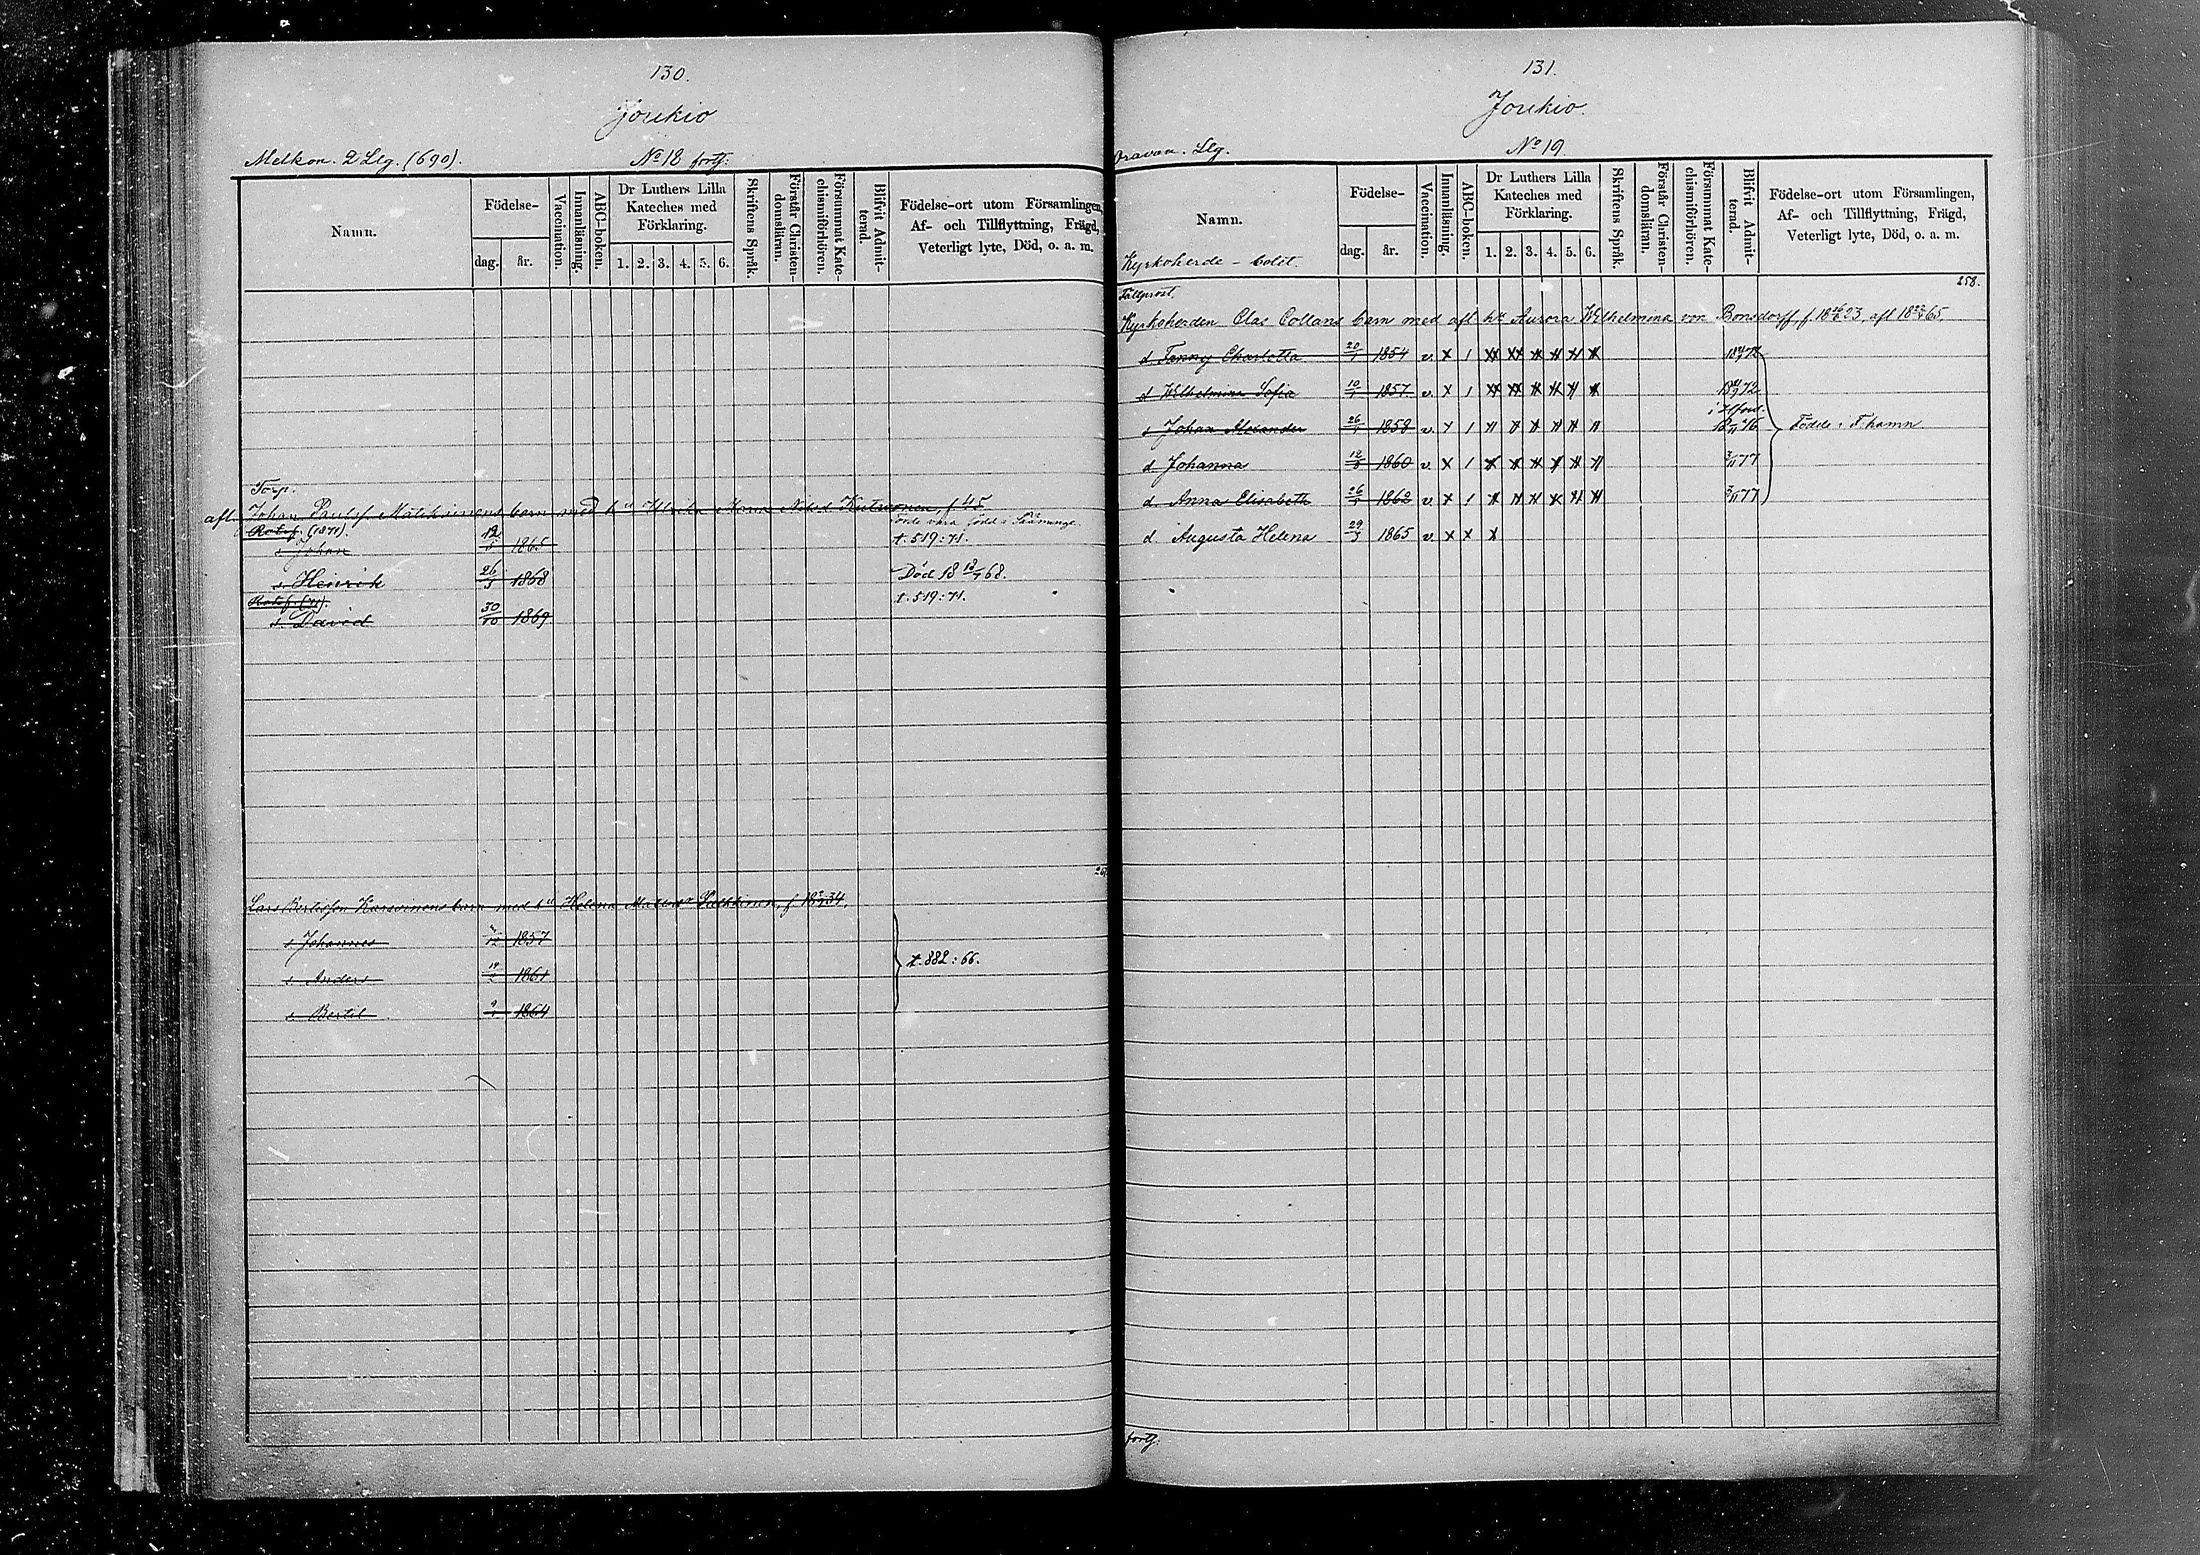 130.
Joukio
Melkon. 2 Llg. (690). No 18 fortf.
Namn.
Födelse-
dag. år.
Vaccination.
Innanläsning.
ABC-boken.
Dr Luthers Lilla Kateches med Förklaring.
1. 2. 3. 4. 5. 6.
Skriftens Språk.
Förstår Christendomsläran.
Försummat Katechismiförhören.
Blifvit Admitterad.
Födelse-ort utom Församlingen,
Af- och Tillflyttning, Frägd,
Veterligt lyte, Död, o. a. m.
Torp.
afl. Johan Paulsf. Malckinens barn med hu Ulrika Maria Nilsd Kutvonen, f 45
Rotef. (1871). torde vara född i Sääminge.
s Johan 12 1865 t. 519:71.
s. Henrik 26/3 1868 Död 18 18/7 68.
Rotef. (71). t. 519:71.
s David 30/10 1869
Lars Bertilsson Karvinens barn med hu Helena Matsd
s Johannes 1857
s Anders 1861 t. 882:66.
s Bertil 1864
131.
Joukio.
Llg. No 19.
Namn.
Kyrkoherde-bolet.
Födelse-
dag. år.
Vaccination.
Innanläsning.
ABC-boken.
Dr Luthers Lilla Kateches med Förklaring.
1. 2. 3. 4. 5. 6.
Skriftens Språk.
Förstår Christendomsläran.
Försummat Katechismiförhören.
Blifvit Admitterad.
Födelse-ort utom Församlingen,
Af- och Tillflyttning, Frägd,
Veterligt lyte, Död, o. a. m.
258.
Fältprost,
Kyrkoherden Clas Collans barn med afl hu Aurora Wilhelmina von Bonsdorff, f. 23, afl 65.
d. Fanny Charlotta 20/1 1854 v. x 1
d Wilhelmina Sofia 10 1857 v. x 1 72
s Johan Alexander 26 1858 v. x 1 Födde i Fhamn
d. Johanna 12/8 1860 v. x 1 3/11 77
d. Anna Elisabeth 26 1862 v. x 1 3/11 77
d. Augusta Helena 29/3 1865 v. x x x
fortf.